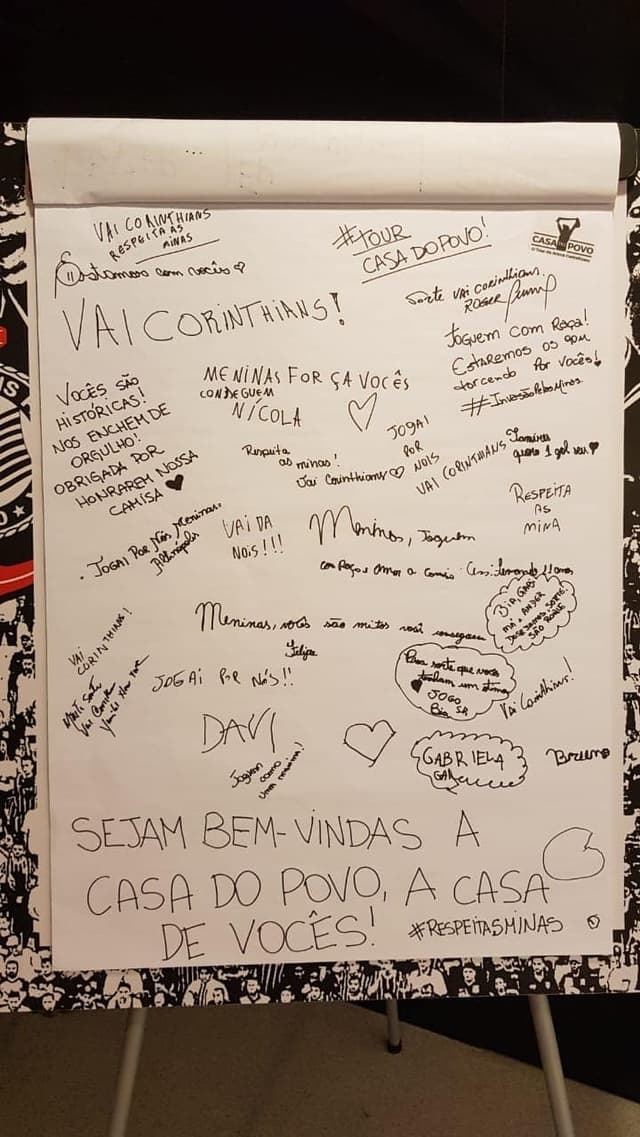 VAI CORINTHIANS
RESPEITA AS
MINAS
Estamos com vocês
#TOUR
CASA DO POVO!
CASA DO POVO
VAI CORINTHIANS!
Sorte VAI CORINTHIANS.
ROGER
Joguem com Raça!
Estaremos os
torcendo por vocês!
#InvasãoPelasMinas
VOCÊS SÃO
HISTÓRICAS!
NOS ENCHEM DE
ORGULHO!
OBRIGADA POR
HONRAREM NOSSA
CAMISA
MENINAS FORÇA VOCÊS
CONSEGUEM
NÍCOLA
Respeita
as minas!
Vai Corinthians
JOGAI
POR
NOIS
VAI CORINTHIANS
quero 1 gol seu
RESPEITA
AS
MINA
. JOGAI POR Nós Meninas.
VAI DA
NOIS!!!
Meninas, Joguem
com Raça e Amor a Camisa
Meninas, vocês são mitos você consegue
Felipe
BIA, GABI
DESEJAMOS SORTE!
SÃO JORGE
VAI
CORINTHIANS!
JOGAI POR NÓS!!
Boa sorte que vocês
tenham um ótimo
JOGO
Bia
Vai Corinthians!
DAVI
Joguem
como
uma menina!
GABRIELA
Bruno
SEJAM BEM-VINDAS A
CASA DO POVO, A CASA
DE VOCÊS!
#RESPEITASMINAS